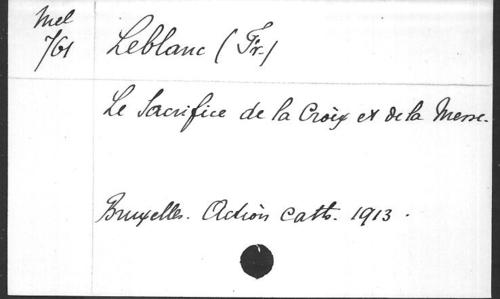 Mel
761
Leblanc (Fr.)
Le Sacrifice de la Croix et de la Messe.
Bruxelles. Action cath. 1913.